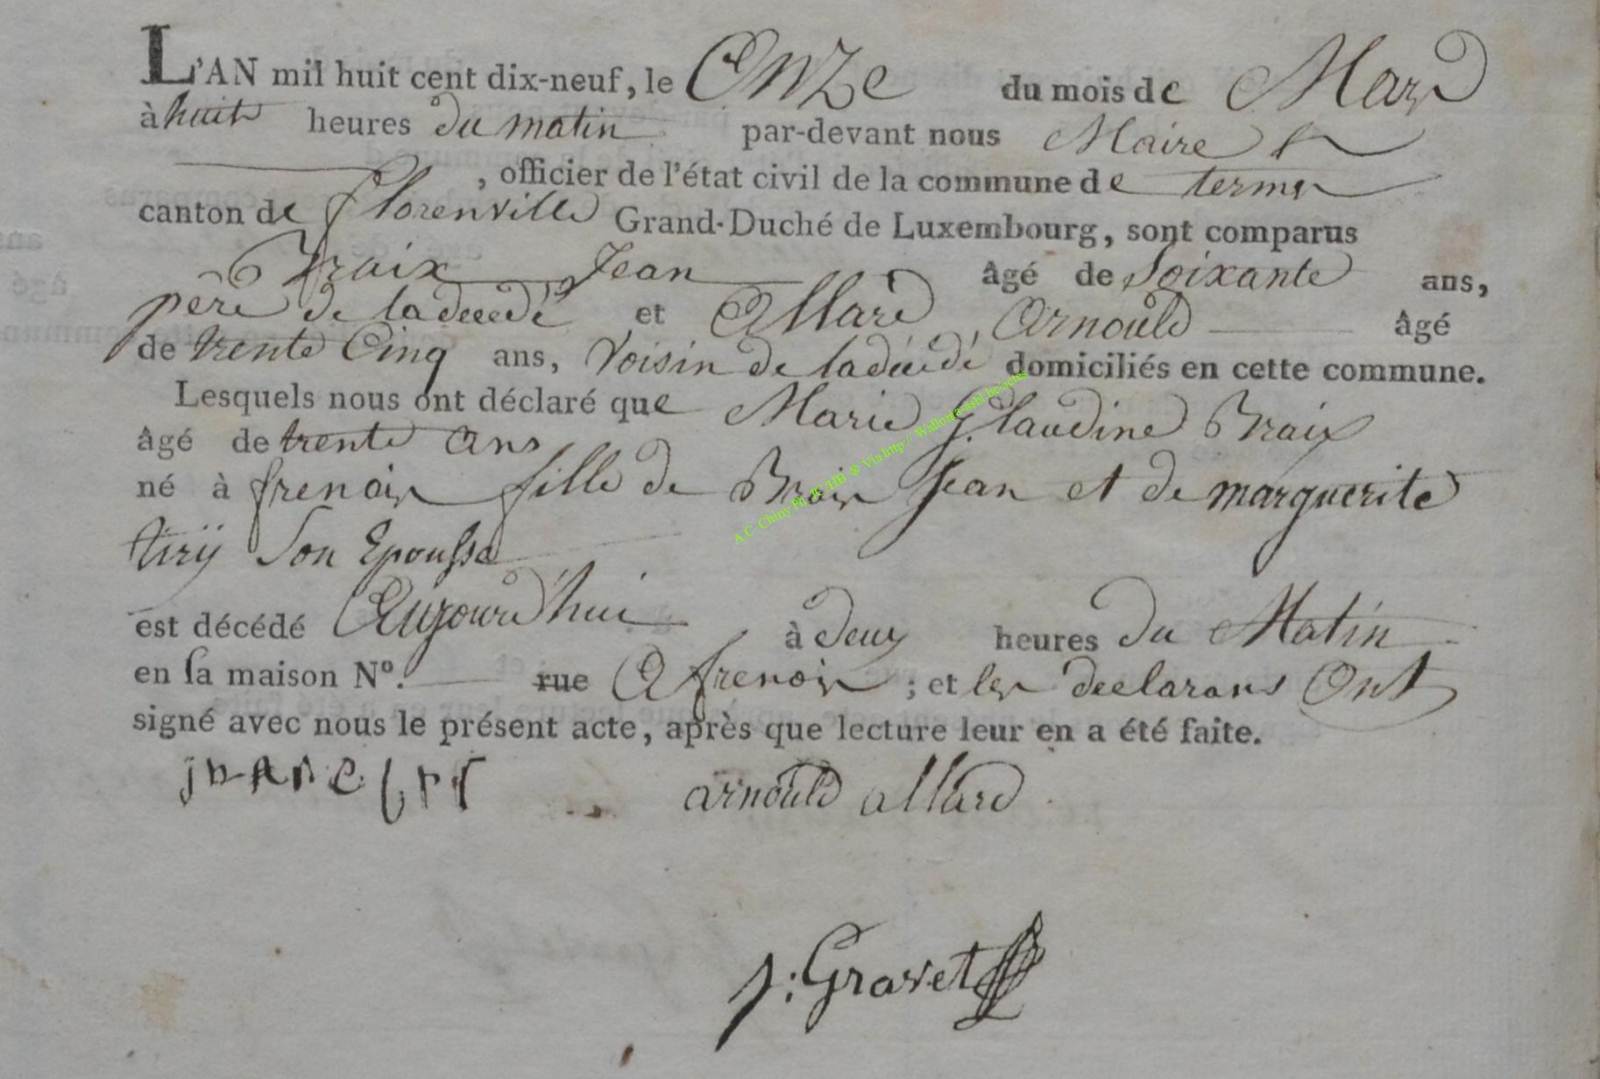 L'AN mil huit cent dix-neuf, le Onze du mois de Mars
à huit heures du matin par-devant nous Maire
, officier de l'état civil de la commune de termes
canton de florenville Grand-Duché de Luxembourg, sont comparus
Braix Jean âgé de Soixante ans,
père de la decedé et Allard Arnould âgé
de trente Cinq ans, Voisin de la décédé domiciliés en cette commune.
Lesquels nous ont déclaré que Marie Glaudine Braix
âgé de trente ans
né à frenois fille de Braix Jean et de marguerite
tirÿ Son Epousse
est décédé Aujourd'hui à deux heures du Matin
en sa maison N°. rue A frenois ; et les declarans Ont
signé avec nous le présent acte, après que lecture leur en a été faite.
arnould allard
j: Gravet